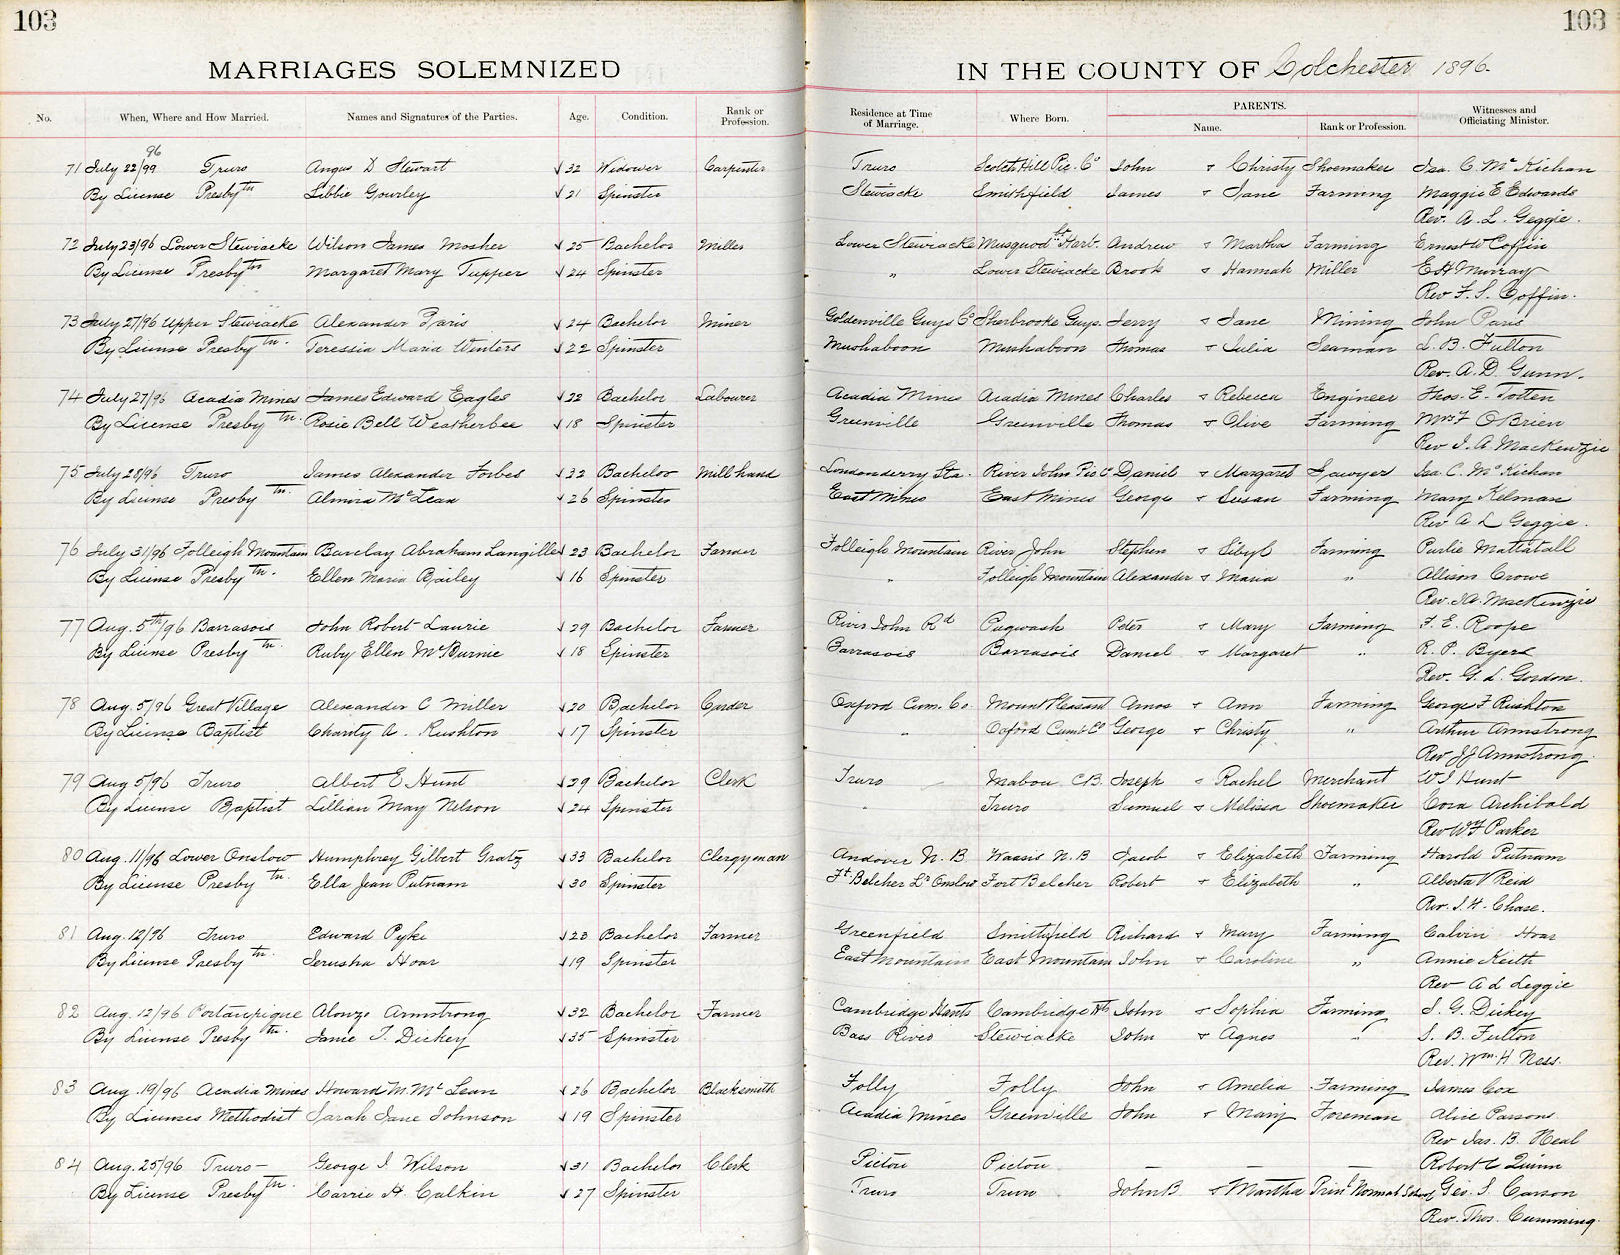 103
103
MARRIAGES SOLEMNIZED
IN THE COUNTY OF Colchester 1896.
No. When, Where and How Married. Names and Signatures of the Parties. Age. Condition. Rank or Profession. Residence at Time of Marriage. Where Born. PARENTS. Name. Rank or Profession. Witnesses and Officiating Minister.
96
71 July 22/99 Truro Angus D Stewart √32 Widower Carpenter Truro Scotch Hill Pic. Co John & Christy Shoemaker Isa. C. McKichan
By License Presbytn Libbie Gourley √21 Spinster Stewiacke Smithfield James & Jane Farming Maggie E Edwards
Rev. A. L. Geggie.
72 July 23/96 Lower Stewiacke Wilson James Mosher √25 Bachelor Miller Lower Stewiacke Musquodtt Harb. Andrew & Martha Farming Ernest W Coffin
By License Presbytn Margaret Mary Tupper √24 Spinster " Lower Stewiacke Brook & Hannah Miller E H Murray
Rev F. S. Coffin.
73 July 27/96 Upper Stewiacke Alexander Paris √24 Bachelor Miner Goldenville Guys Co Sherbrooke Guys. Jerry & Jane Mining John Paris
By License Presbytn. Teressia Maria Winters √22 Spinster Mushaboon Mushaboon Thomas & Julia Seaman L. B. Fulton
Rev. A. D. Gunn.
74 July 27/96 Acadia Mines James Edward Eagles √22 Bachelor Labourer Acadia Mines Acadia Mines Charles & Rebecca Engineer Thos. E. Totten
By License Presbytn. Rosie Bell Weatherbee √18 Spinster Greenville Greenville Thomas & Olive Farming Mrs F O'Brien
Rev J. A. MacKenzie
75 July 28/96 Truro James Alexander Forbes √32 Bachelor Mill hand Londonderry Sta. River John Pic Co Daniel & Margaret Sawyer Isa C. McKichan
By License Presbytn. Almira McLean √26 Spinster East Mines East Mines George & Susan Farming Mary Kelman
Rev A L Geggie.
76 July 31/96 Folleigh Mountain Barclay Abraham Langille √23 Bachelor Farmer Folleigh Mountain River John Stephen & Sibyl Farming Purlie Mattatall
By License Presbytn. Ellen Maria Bailey √16 Spinster " Folleigh Mountain Alexander & Maria " Allison Crowe
Rev. J A. MacKenzie
77 Aug. 5th/96 Barrasois John Robert Laurie √29 Bachelor Farmer River John Rd Pugwash Peter & Mary Farming F. E. Roope
By License Presbytn. Ruby Ellen McBurnie √18 Spinster Barrasois Barrasois Daniel & Margaret " R. P. Byers
Rev. G. L. Gordon.
78 Aug. 5/96 Great Village Alexander C Miller √20 Bachelor Carder Oxford Cum. Co Mount Pleasant Amos & Ann Farming George F Rushton
By License Baptist Charity A. Rushton √17 Spinster " Oxford Cumb Co George & Christy " Arthur Armstrong
Rev JJ Armstrong.
79 Aug 5/96 Truro Albert E. Hunt √29 Bachelor Clerk Truro Mabou C.B. Joseph & Rachel Merchant W J Hunt
By License Baptist Lillian May Nelson √24 Spinster " Truro Samuel & Melissa Shoemaker Cora Archibald
Rev W F Parker
80 Aug. 11/96 Lower Onslow Humphrey Gilbert Gratz √33 Bachelor Clergyman Andover N.B. Waasis N.B Jacob & Elizabeth Farming Harold Putnam
By License Presbytn. Ella Jean Putnam √30 Spinster Ft. Belcher Lr Onslow Fort Belcher Robert & Elizabeth " Alberta V Reid
Rev. J. H. Chase.
81 Aug. 12/96 Truro Edward Pyke √23 Bachelor Farmer Greenfield Smithfield Richard & Mary Farming Calvin Hoar
By License Presbytn. Jerusha Hoar √19 Spinster East Mountain East Mountain John & Caroline " Annie Keith
Rev A L Geggie
82 Aug. 12/96 Portaupique Alonzo Armstrong √32 Bachelor Farmer Cambridge Hants Cambridge Hts John & Sophia Farming S. G. Dickey
By License Presbytn. Janie T. Dickey √35 Spinster Bass River Stewiacke John & Agnes " S. B. Fulton
Rev. Wm. H. Ness.
83 Aug. 19/96 Acadia Mines Howard M. McLean √26 Bachelor Blacksmith Folly Folly John & Amelia Farming James Cox
By License Methodist Sarah Jane Johnson √19 Spinster Acadia Mines Greenville John & Mary Foreman Alice Parsons
Rev Jas. B. Heal
84 Aug. 25/96 Truro - George I Wilson √31 Bachelor Clerk Pictou Pictou — — — Robert C Quinn
By License Presbytn. Carrie H. Calkin √27 Spinster Truro Truro John B & Martha Prinl Normal School Geo. S. Carson
Rev. Thos. Cumming.